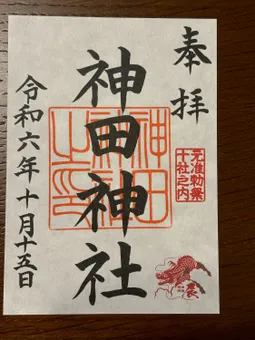 奉拝
元准勅祭
十社之内
神田神社
神田
神社
之印
辰
令和六年十月十五日